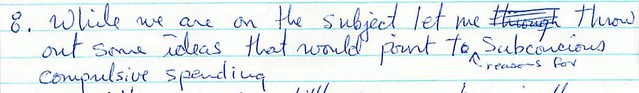 8. While we are on the subject let me through throw
out some ideas that would point to reasons for Subconcious
compulsive spending